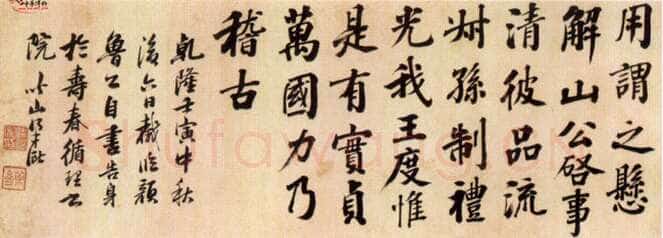 用謂之懸
解山公啓事
清彼品流
叔孫制禮
光我王度惟
是有實貞
萬國力乃
稽古
乾隆壬寅中秋
後六日戲臨顏
魯公自書告身
於壽春循理書
院